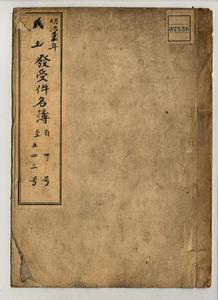 明治五年
民土發受件名簿
自一号
至五四三号
07536